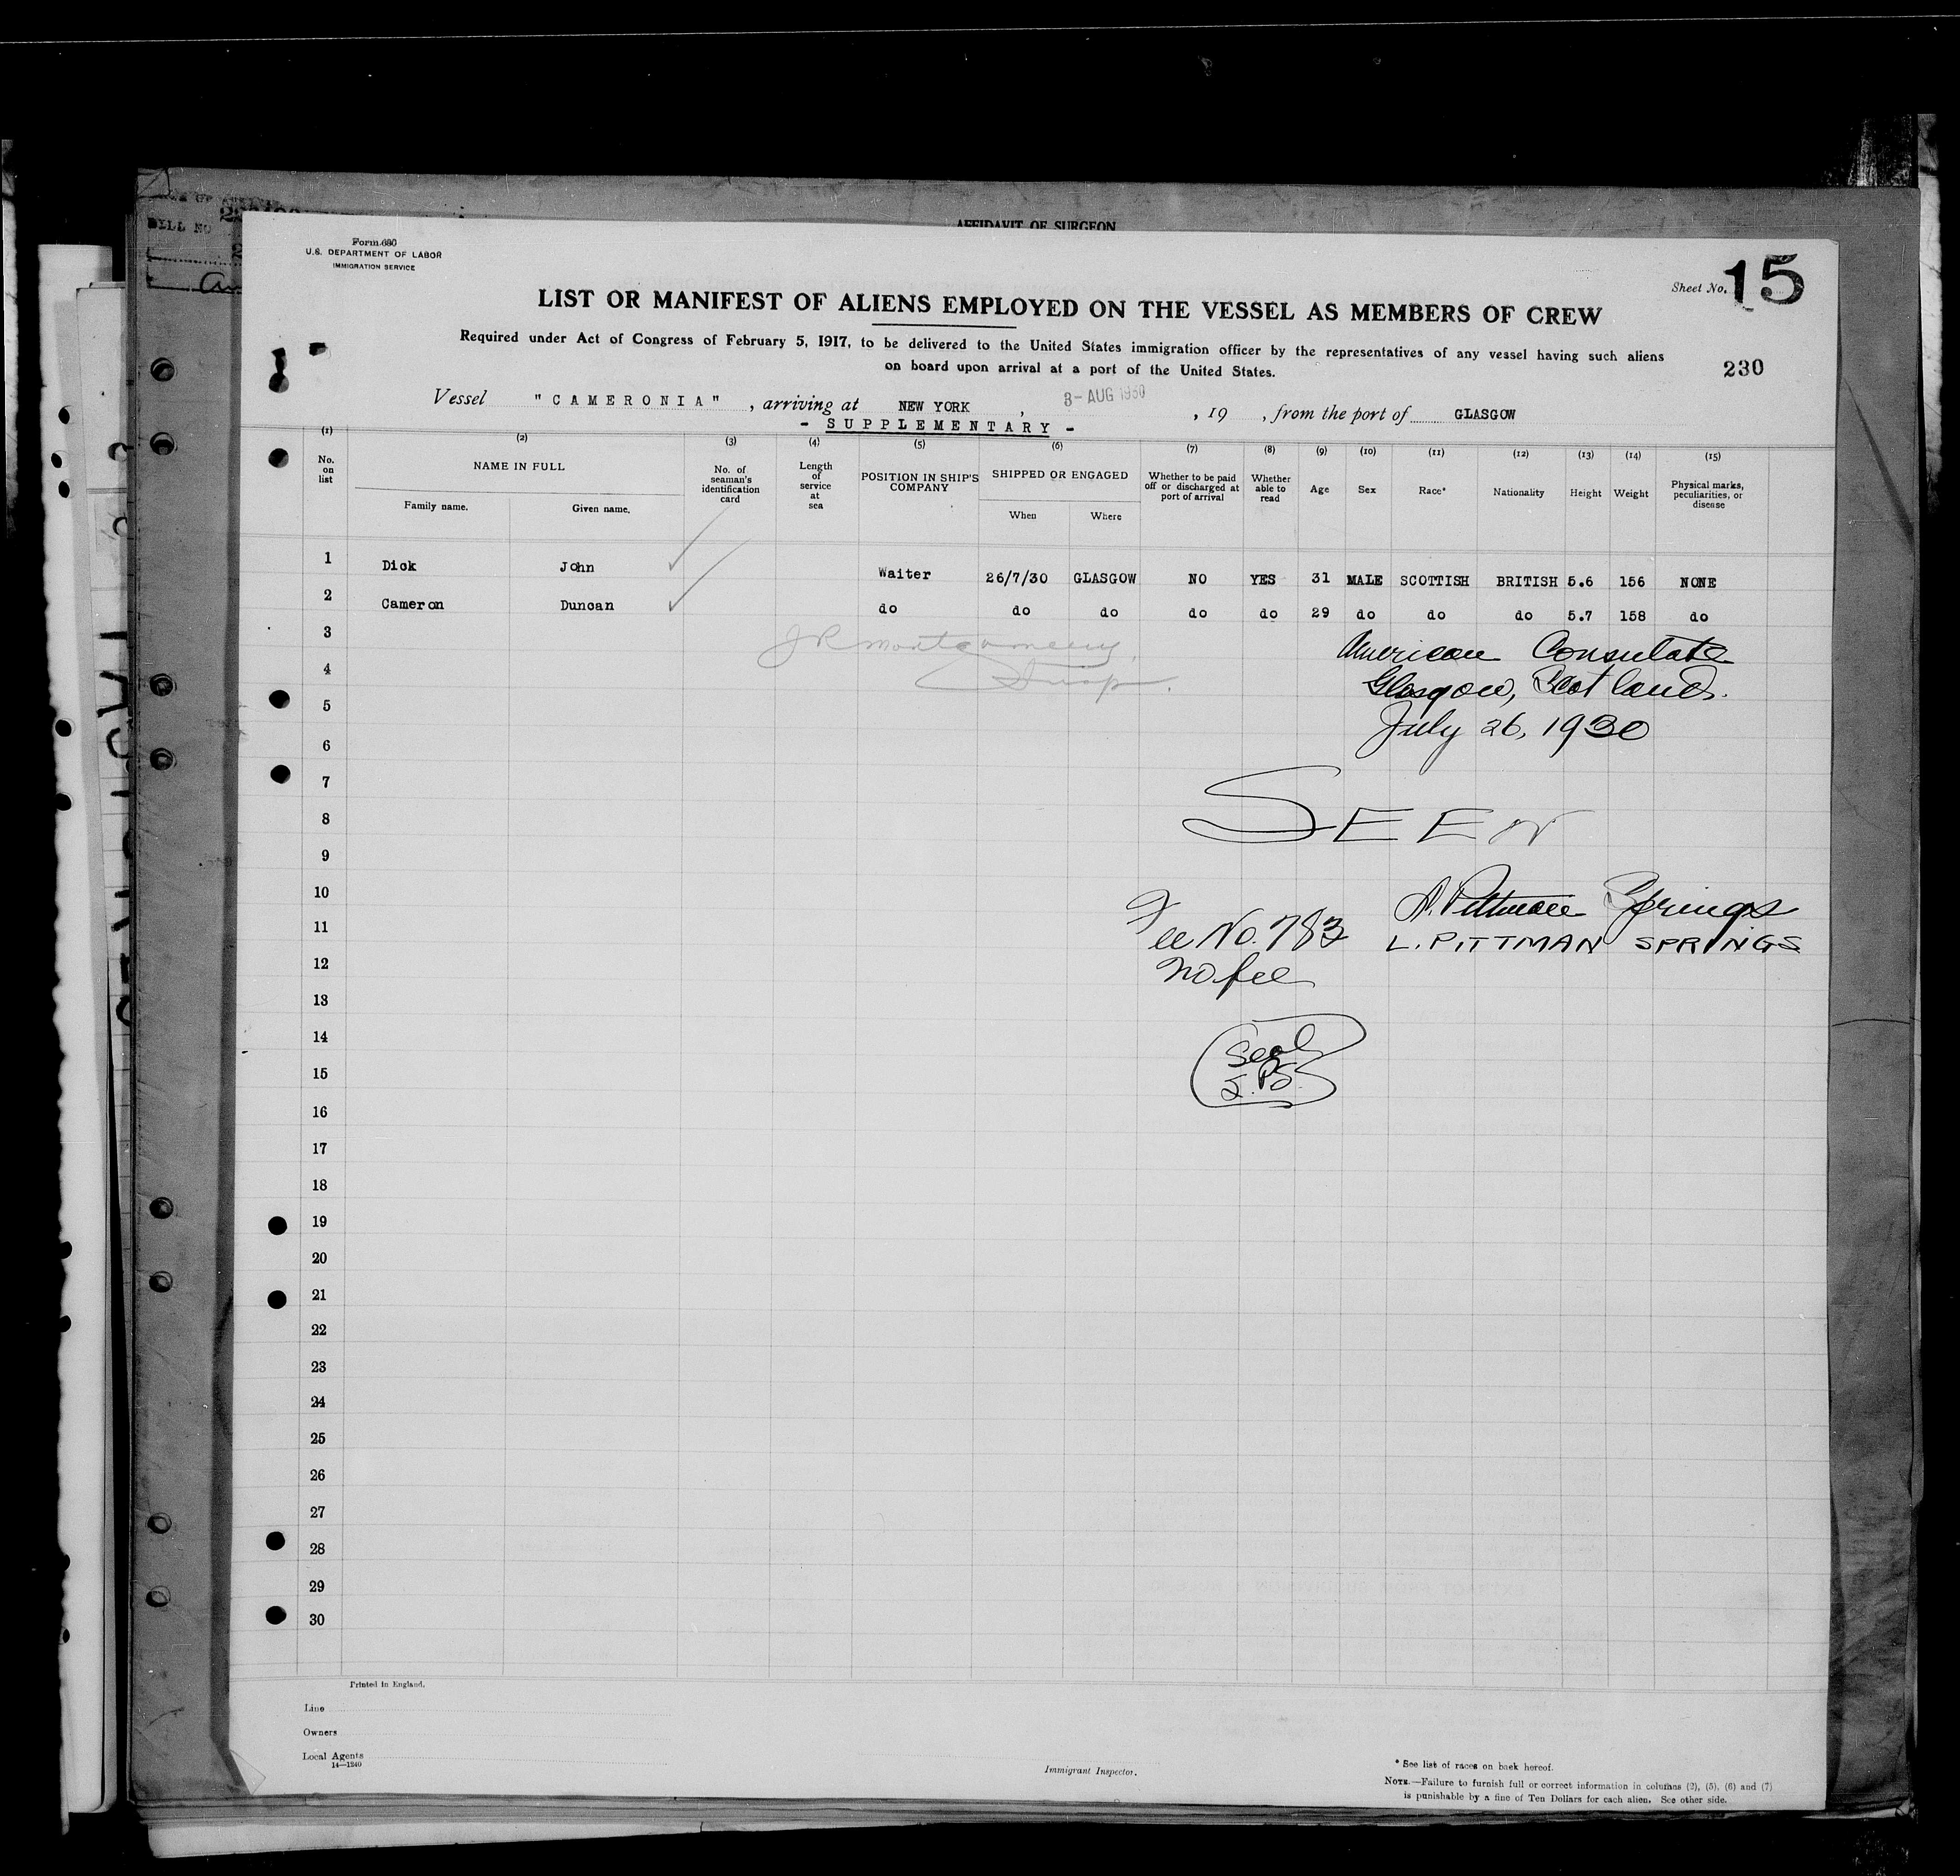 AFFIDAVIT OF SURGEON
BILL NO
Form 680
U.S. DEPARTMENT OF LABOR
IMMIGRATION SERVICE
Sheet No. 15
LIST OR MANIFEST OF ALIENS EMPLOYED ON THE VESSEL AS MEMBERS OF CREW
Required under Act of Congress of February 5, 1917, to be delivered to the United States immigration officer by the representatives of any vessel having such aliens
on board upon arrival at a port of the United States.
230
Vessel "CAMERONIA", arriving at NEW YORK, 3-AUG 1930, 19 , from the port of GLASGOW
- SUPPLEMENTARY -
(1) (2) (3) (4) (5) (6) (7) (8) (9) (10) (11) (12) (13) (14) (15)
No. on list
NAME IN FULL
Family name. Given name.
No. of seaman's identification card
Length of service at sea
POSITION IN SHIP'S COMPANY
SHIPPED OR ENGAGED
When Where
Whether to be paid off or discharged at port of arrival
Whether able to read
Age
Sex
Race*
Nationality
Height
Weight
Physical marks, peculiarities, or disease
1 Dick John Waiter 26/7/30 GLASGOW NO YES 31 MALE SCOTTISH BRITISH 5.6 156 NONE
2 Cameron Duncan do do do do do 29 do do do 5.7 158 do
3
JR Montgomery.
Insp.
American Consulate
4
Glasgow, Scotland.
5
July 26, 1930
6
7
8
SEEN
9
10
L. Pittman Springs
11
Fee No. 783
L. PITTMAN SPRINGS
12
No fee
13
14
Seal
15
L.P.S.
16
17
18
19
20
21
22
23
24
25
26
27
28
29
30
Printed in England.
Line
Owners
Local Agents
14—1240
Immigrant Inspector.
* See list of races on back hereof.
NOTE.—Failure to furnish full or correct information in columns (2), (5), (6) and (7)
is punishable by a fine of Ten Dollars for each alien. See other side.